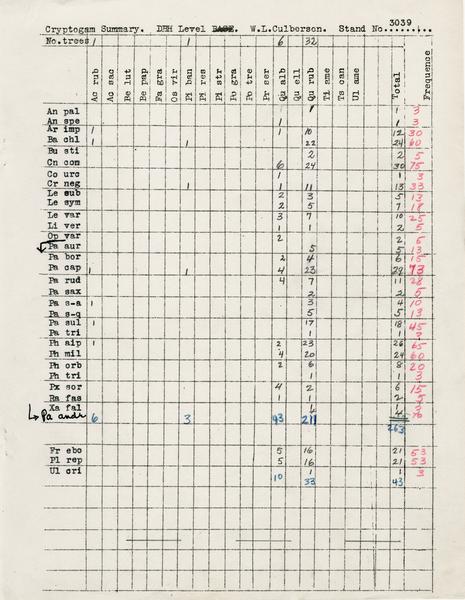 3039
Cryptogam Summary. DBH Level BASE. W.L.Culberson. Stand No........
No.trees 1 1 6 32
Ac rub Ac sac Be lut Be pap Fa gra Os vir Pi ban Pi res Pi str Po gra Po tre Pr ser Qu alb Qu ell Qu rub Ti ame Ts can Ul ame Total Frequence
An pal 1 1 3
An spe 1 1 3
Ar imp 1 1 10 12 30
Ba chl 1 1 22 24 60
Bu sti 2 2 5
Cn con 6 24 30 75
Co urc 1 1 3
Cr neg 1 1 11 13 33
Le sub 2 3 5 13
Le sym 2 5 7 18
Le var 3 7 10 25
Li ver 1 1 2 5
Op var 2 2 5
Pa aur 5 5 13
Pa bor 2 4 6 15
Pa cap 1 1 4 23 29 73
Pa rud 4 7 11 28
Pa sax 2 2 5
Pa s-a 1 3 4 10
Pa s-q 5 5 13
Pa sul 1 17 18 45
Pa tri 1 1
Ph aip 1 2 23 26 65
Ph mil 4 20 24 60
Ph orb 2 6 8 20
Ph tri 1 1 3
Px sor 4 2 6 15
Ra fas 1 1 2 5
Xa fal 1
Pa andr 6 3 93 211
263
Fr ebo 5 16 21 53
Pl rep 5 16 21 53
Ul cri 1 1 3
10 33 43